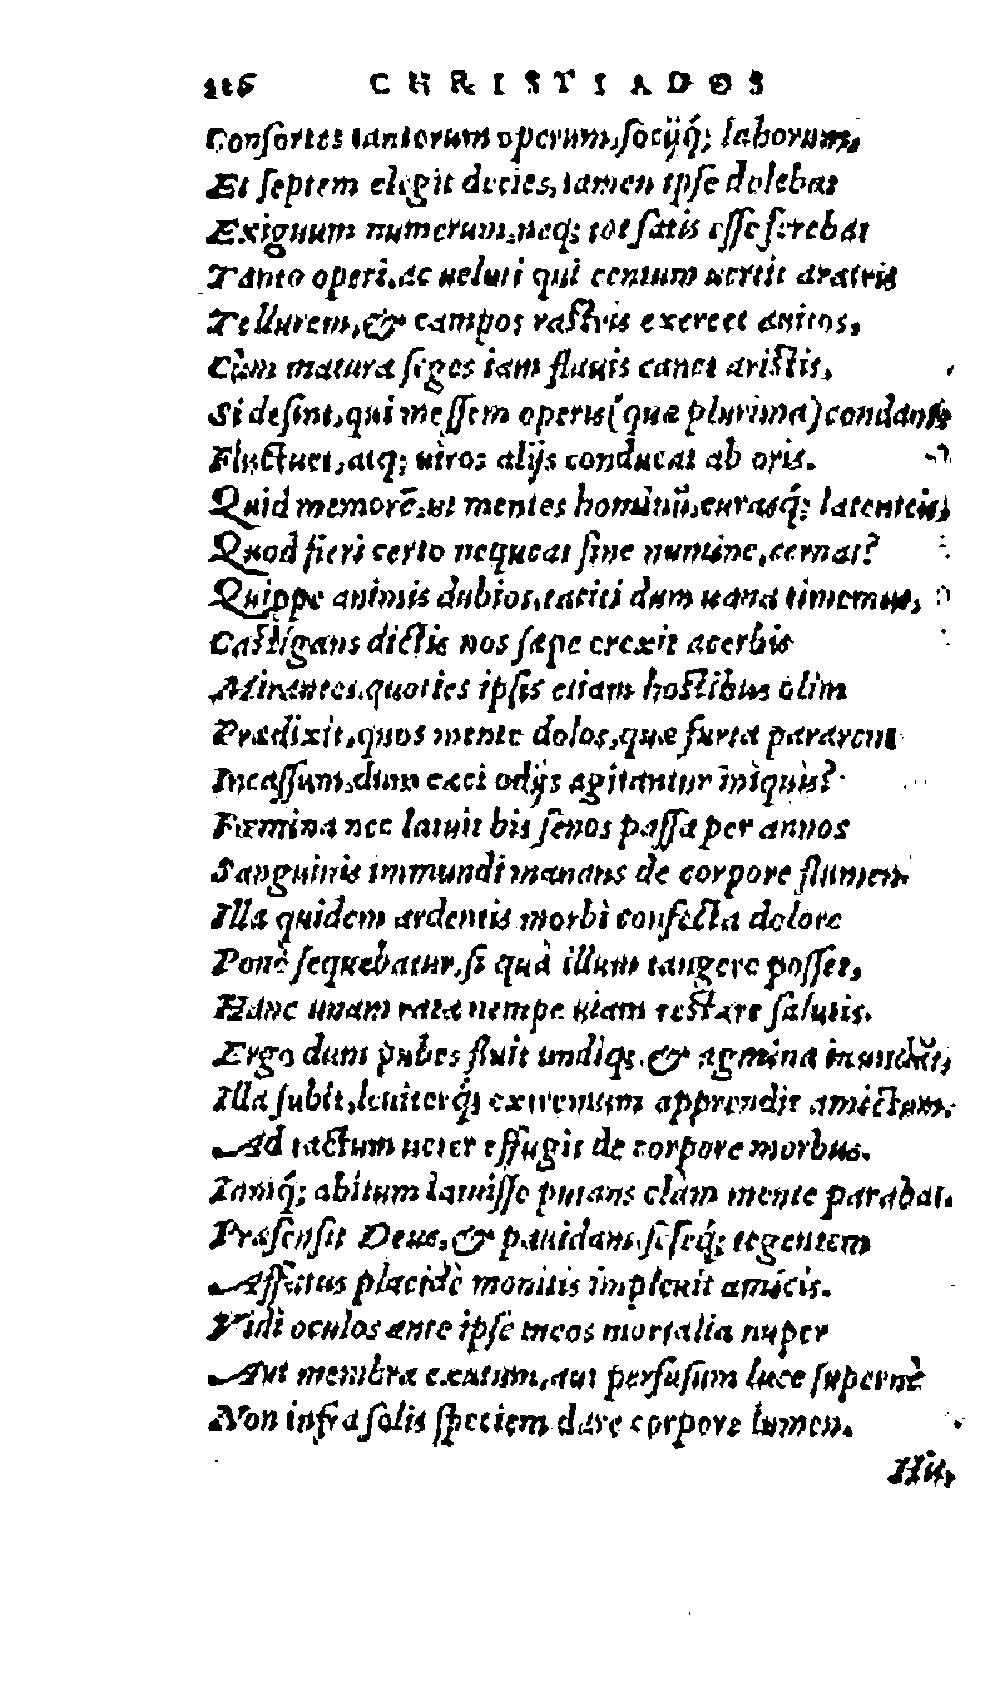 116 CHRISTIADOS
Consortes tantorum operum, socijq́; laborum,
Et septem elegit decies, tamen ipse dolebat
Exiguum numerum, neq; tot satis esse ferebat
Tanto operi. ac ueluti qui centum uertit aratris
Tellurem, & campos rastris exercet auitos,
Cùm matura seges iam flauis canet aristis,
Si desint, qui messem operis (quæ plurima) condant
Fluctuet, atq; uiros alijs conducat ab oris.
Quid memorē, ut mentes hominū, curasq́; latenteis,
Quod fieri certo nequeat sine numine, cernat?
Quippe animis dubios, taciti dum uana timemus,
Castigans dictis nos sæpe erexit acerbis
Mirantes, quoties ipsis etiam hostibus olim
Prædixit, quos mente dolos, quæ furta pararent
Incassum, dum cæci odijs agitantur iniquis?
Fœmina nec latuit bis senos passa per annos
Sanguinis immundi manans de corpore flumen.
Illa quidem ardentis morbi confecta dolore
Ponè sequebatur, si quà illum tangere posset,
Hanc unam rata nempe uiam restare salutis.
Ergo dum pubes fluit undiq; & agmina inundāt,
Illa subit, leuiterq́; extremum apprendit amictum.
Ad tactum ueter effugit de corpore morbus.
Iamq́; abitum latuisse putans clàm mente parabat.
Præsensit Deus, & pauidam, seseq́; tegentem
Affatus placidè monitis impleuit amicis.
Vidi oculos ante ipse meos mortalia nuper
Aut membra exutum, aut perfusum luce supernè
Non infra solis speciem dare corpore lumen.
His,